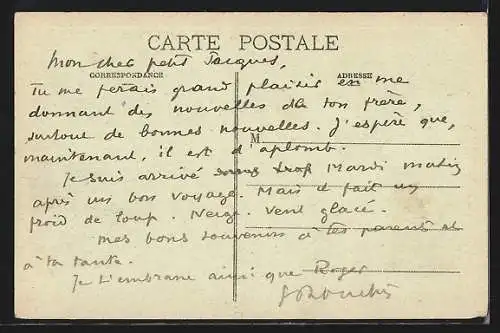 CARTE POSTALE
Mon cher petit Jacques,
CORRESPONDANCE
ADRESSE
Tu me ferais grand plaisir en me
donnant des nouvelles de ton frère,
surtout de bonnes nouvelles. J'espère que,
M
maintenant, il est d'aplomb.
Je suis arrivé Mardi matin
après un bon voyage. Mais il fait un
froid de loup. Neige. Vent glacé.
Mes bons souvenirs à tes parents et
à ta tante.
Je t'embrasse ainsi que Roger